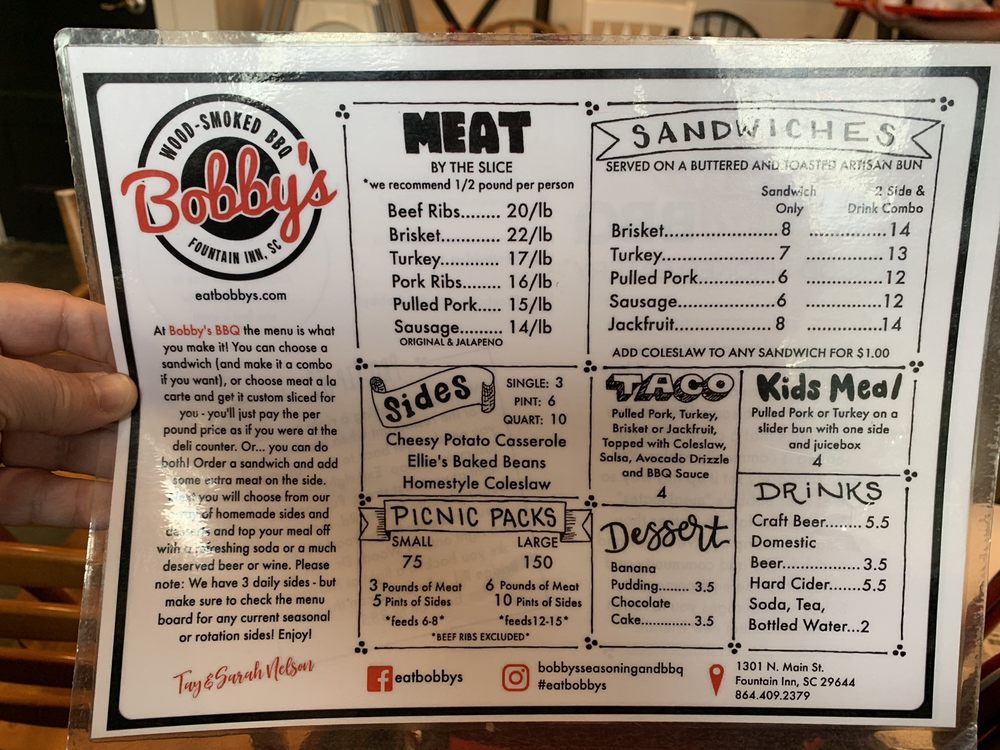 WOOD-SMOKED BBQ
Bobby's
FOUNTAIN INN, SC
eatbobbys.com
At Bobby's BBQ the menu is what
you make it! You can choose a
sandwich (and make it a combo
if you want), or choose meat a la
carte and get it custom sliced for
you - you'll just pay the per
pound price as if you were at the
deli counter. Or... you can do
both! Order a sandwich and add
some extra meat on the side.
you will choose from our
of homemade sides and
desserts and top your meal off
with a refreshing soda or a much
deserved beer or wine. Please
note: We have 3 daily sides - but
make sure to check the menu
board for any current seasonal
or rotation sides! Enjoy!
Tay & Sarah Nelson
MEAT
BY THE SLICE
*we recommend 1/2 pound per person
Beef Ribs........ 20/lb
Brisket........... 22/lb
Turkey........... 17/lb
Pork Ribs....... 16/lb
Pulled Pork..... 15/lb
Sausage........ 14/lb
ORIGINAL & JALAPENO
Sides
SINGLE: 3
PINT: 6
QUART: 10
Cheesy Potato Casserole
Ellie's Baked Beans
Homestyle Coleslaw
PICNIC PACKS
SMALL LARGE
75 150
3 Pounds of Meat 6 Pounds of Meat
5 Pints of Sides 10 Pints of Sides
*feeds 6-8* *feeds12-15*
*BEEF RIBS EXCLUDED*
SANDWICHES
SERVED ON A BUTTERED AND TOASTED ARTISAN BUN
Sandwich 2 Side &
Only Drink Combo
Brisket......................8 ...............14
Turkey......................7 ...............13
Pulled Pork................6 ...............12
Sausage...................6 ...............12
Jackfruit...................8 ...............14
ADD COLESLAW TO ANY SANDWICH FOR $1.00
TACO
Pulled Pork, Turkey,
Brisket or Jackfruit,
Topped with Coleslaw,
Salsa, Avocado Drizzle
and BBQ Sauce
4
Kids Meal
Pulled Pork or Turkey on a
slider bun with one side
and juicebox
4
Dessert
Banana
Pudding........ 3.5
Chocolate
Cake............. 3.5
DRINKS
Craft Beer........ 5.5
Domestic
Beer.................3.5
Hard Cider.......5.5
Soda, Tea,
Bottled Water...2
eatbobbys
bobbysseasoningandbbq
#eatbobbys
1301 N. Main St.
Fountain Inn, SC 29644
864.409.2379